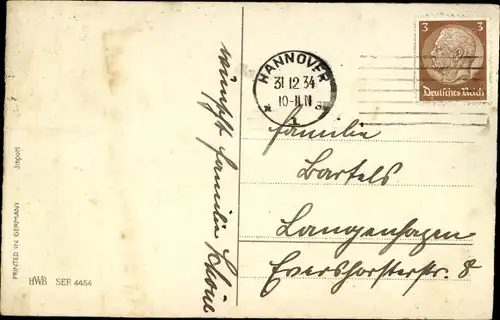 wünscht Familie Schöne
HANNOVER
31.12.34
10-11
1
3 3
Deutsches Reich
Familie
Bartels
Langenhagen
Evershorsterstr. 8
Import
PRINTED IN GERMANY
HWB SER 4454